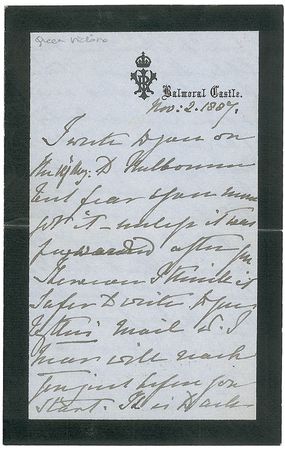 Queen Victoria
Balmoral Castle.
Nov: 2. 1887.
I write to you on
the Melbourne
but fear you
got it – unless it was
forwarded after you
Therefore I think it
safer to write to you
by this Mail as I
hear will reach
you just before you
start. This is